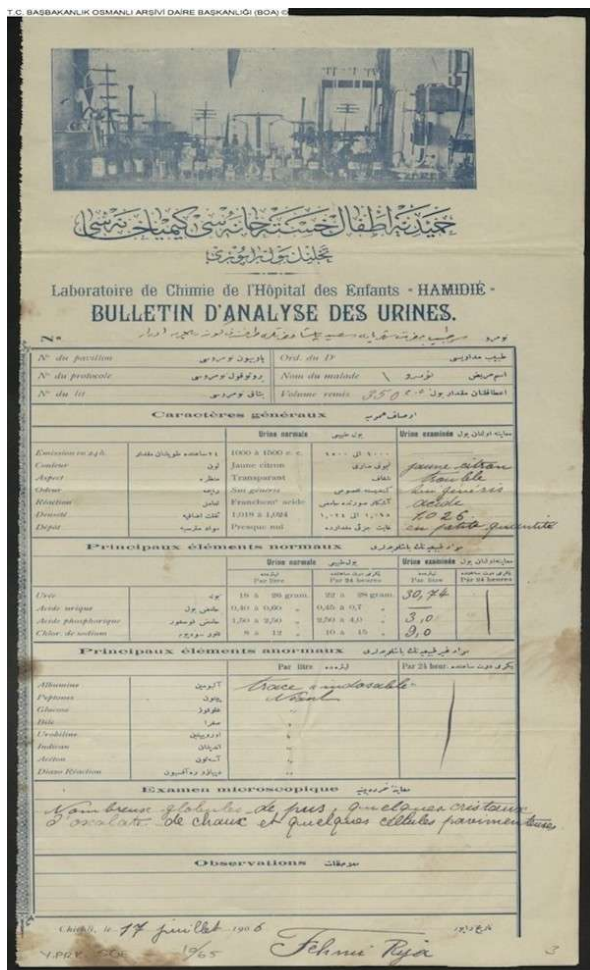 T.C. BAŞBAKANLIK OSMANLI ARŞİVİ DAİRE BAŞKANLIĞI (BOA) ©
حميديه اطفال خسته خانه سى كيمياخانه سى
تحليل بول راپورى
Laboratoire de Chimie de l'Hôpital des Enfants - HAMIDIÉ -
BULLETIN D'ANALYSE DES URINES.
Nº نومرو
Nº du pavillon پاويون نومروسى Ord. du Dr طبيب مداويسى
Nº du protocole پروتوقول نومروسى Nom du malade اسم مريض
Nº du lit يتاق نومروسى Volume remis 350 c.c.
Caractères généraux اوصاف عموميه
Urine normale بول طبيعى Urine examinée معاينه اولنان بول
Emission en 24 h. 1000 à 1500 c. c.
Couleur لون Jaune citron jaune citron
Aspect منظره Transparent شفاف trouble
Odeur رايحه Sui generis sui generis
Réaction تعامل Franchemt acide acide
Densité 1,018 à 1,024 1.026
Dépôt Presque nul en petite quantité
Principaux éléments normaux
Urine normale بول طبيعى Urine examinée معاينه اولنان بول
Par litre Par 24 heures Par litre Par 24 heures
Urée بول 18 à 26 gram. 22 à 28 gram. 30,74
Acide urique حامض بول 0,40 à 0,60 " 0,45 à 0,7 " —
Acide phosphorique حامض فوسفور 1,50 à 2,50 " 2,50 à 4,0 " 3,0
Chlor. de sodium قلور سوديوم 8 à 12 " 10 à 15 " 9,0
Principaux éléments anormaux
Par litre ليتره ده Par 24 heur.
Albumine آلبومين trace indosable
Peptones پپتون Néant
Glucose غلوقوز "
Bile صفرا "
Urobiline اوروبيلين "
Indican انديقان "
Acéton آسه تون "
Diazo Réaction ديازو ره آقسيون "
Examen microscopique معاينه خرده بينيه
Nombreux globules de pus, quelques cristaux
d'oxalate de chaux et quelques cellules pavimenteuses.
Observations ملاحظات
Chichli, le 17 juillet 1906 تاريخ راپور
Y.PRK. 10/65 Fehmi Riza 3